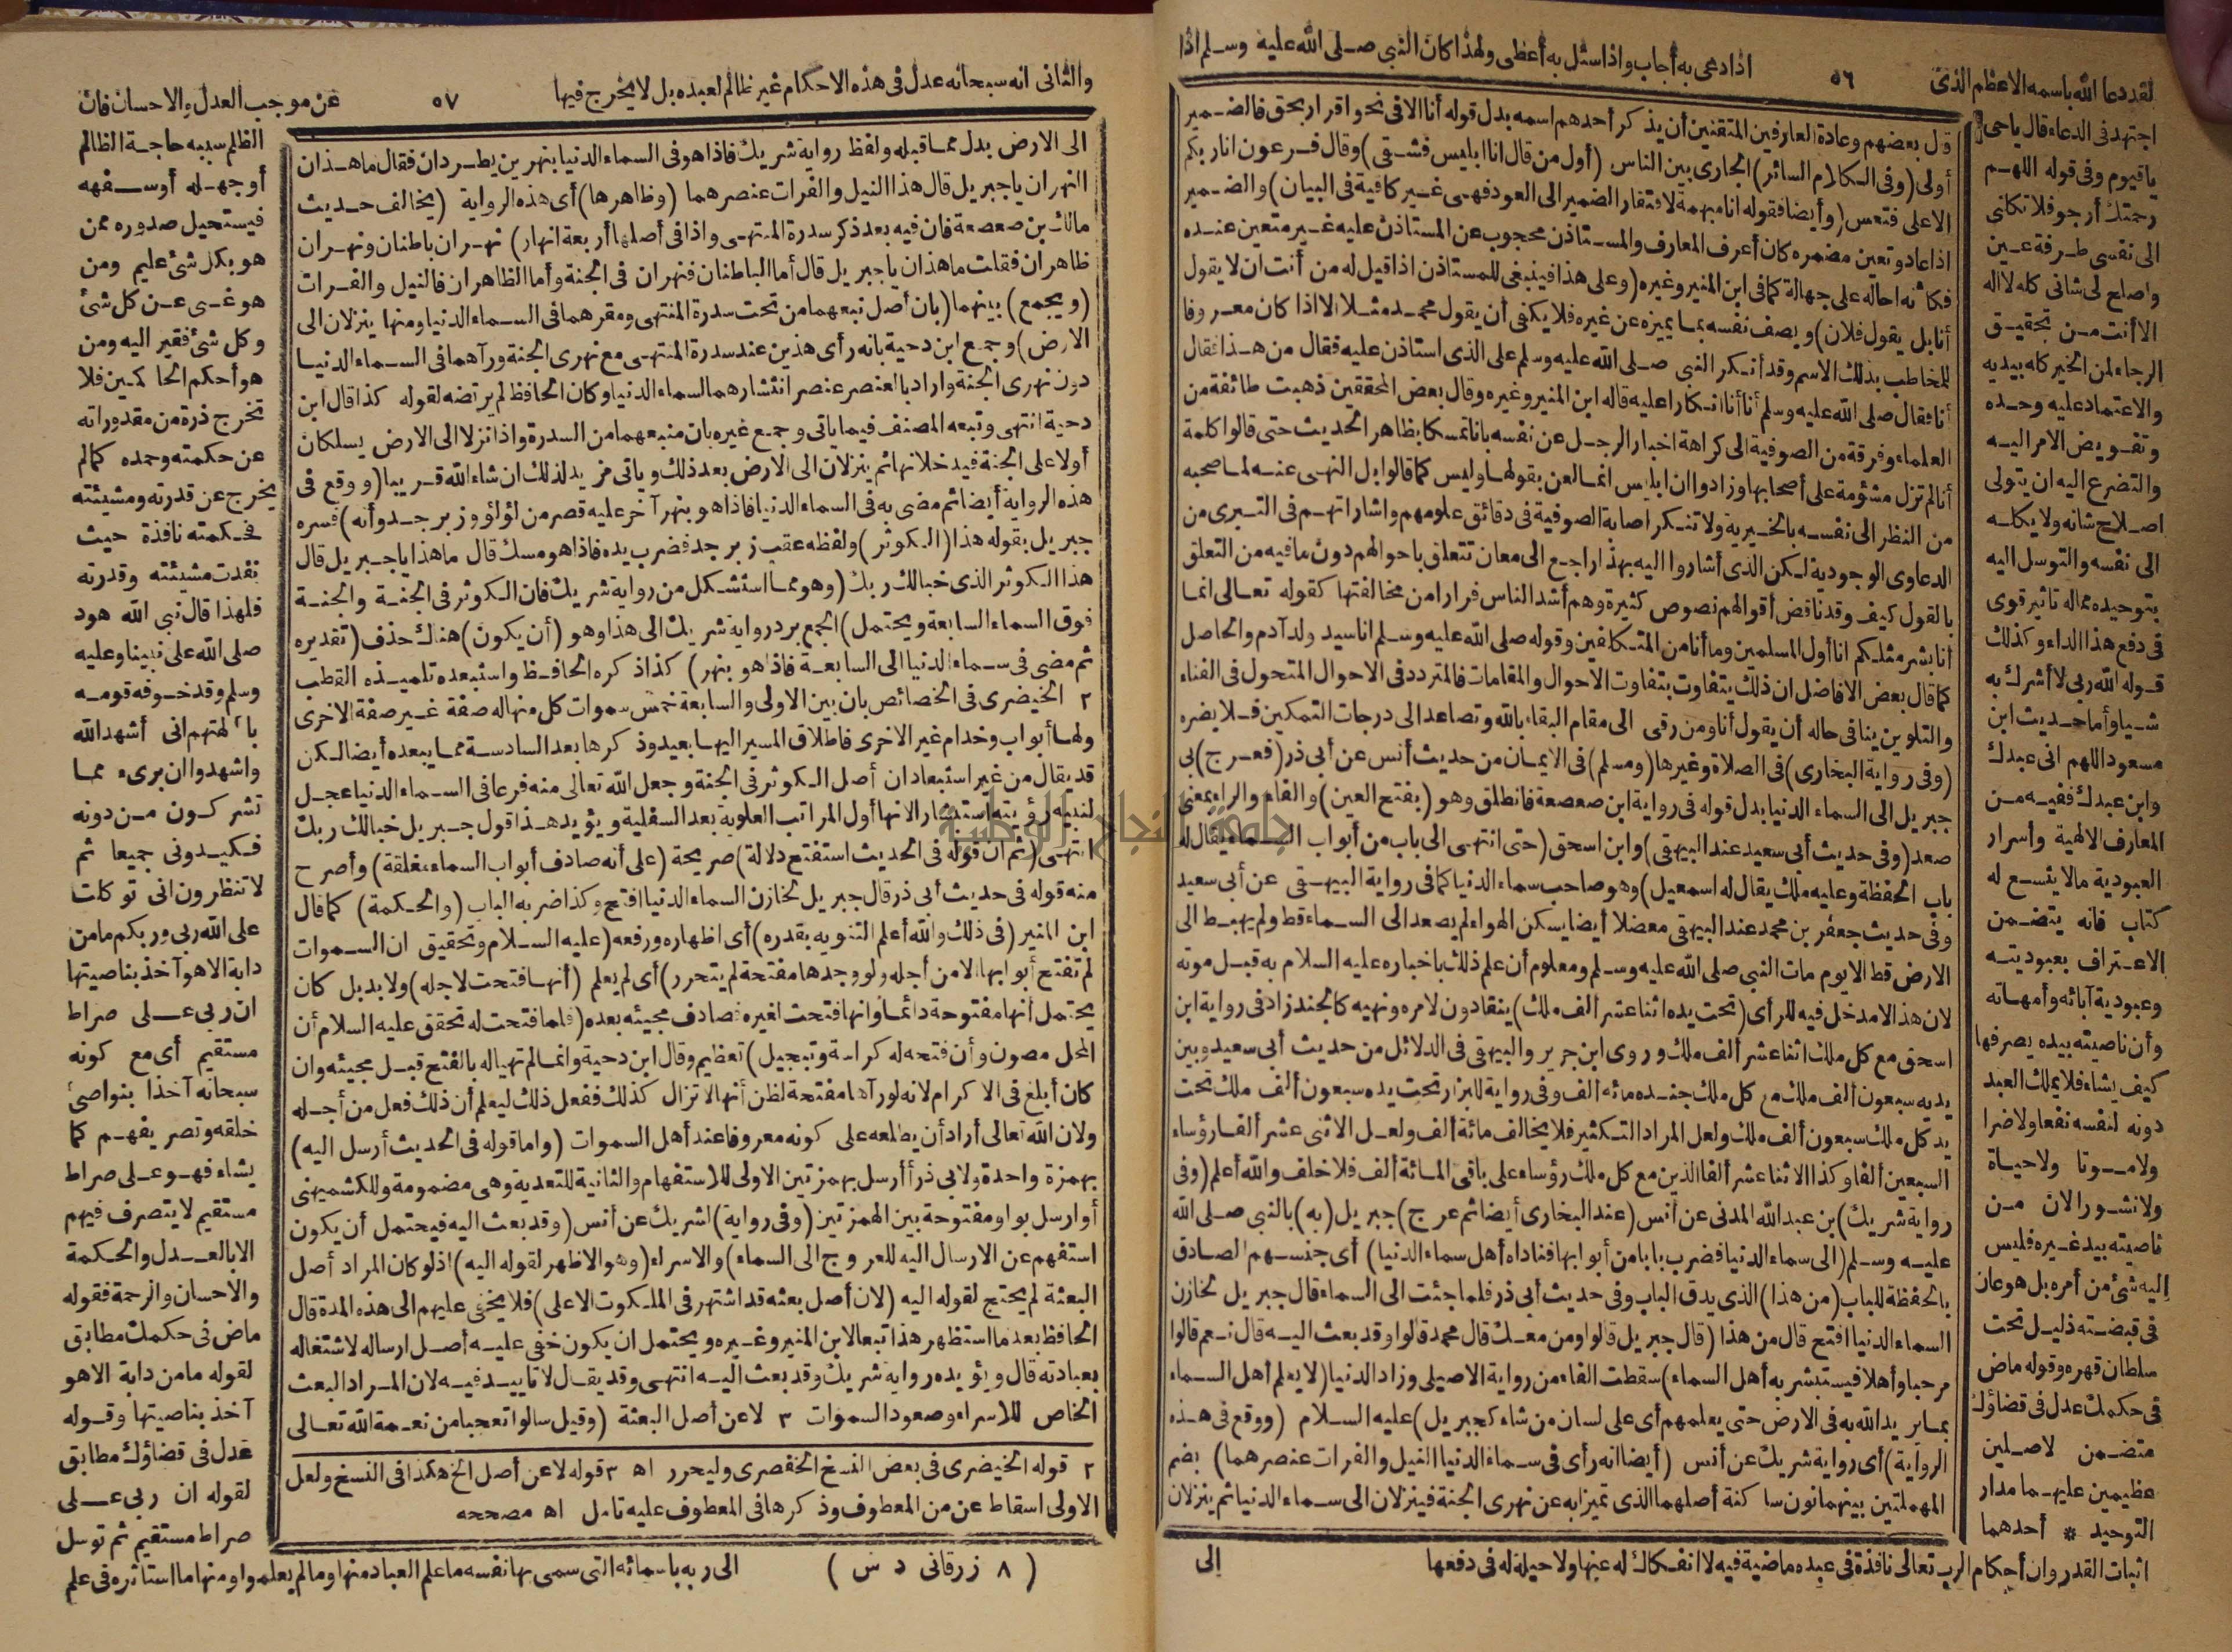 لقد دعا الله باسمه الاعظم الذى ٥٦ اذا دعى به أجاب واذا سئل به أعطى ولهذا كان النبى صلى الله عليه وسلم اذا
اجتهد فى الدعاء قال ياحى
ياقيوم وفى قوله اللهم
رحمتك أرجو فلا تكلنى
الى نفسى طرفة عين
واصلح لى شانى كله لا اله
الا أنت من تحقيق
الرجاء لمن الخير كله بيديه
والاعتماد عليه وحده
وتفويض الامر اليه
والتضرع اليه ان يتولى
اصلاح شانه ولا يكله
الى نفسه والتوسل اليه
بتوحيده مماله تاثير قوى
فى دفع هذا الداء وكذلك
قوله الله ربى لا أشرك به
شيا وأما حديث ابن
مسعود اللهم انى عبدك
وابن عبدك ففيه من
المعارف الالهية وأسرار
العبودية مالا يتسع له
كتاب فانه يتضمن
الاعتراف بعبوديته
وعبودية آبائه وأمهاته
وأن ناصيته بيده يصرفها
كيف يشاء فلا يملك العبد
دونه لنفسه نفعا ولا ضرا
ولا موتا ولا حياة
ولا نشورا لان من
ناصيته بيد غيره فليس
اليه شئ من أمره بل هو عان
فى قبضته ذليل تحت
سلطان قهره وقوله ماض
فى حكمك عدل فى قضاؤك
متضمن لاصلين
عظيمين عليهما مدار
التوحيد * أحدهما
اثبات القدر وان أحكام الرب تعالى نافذة فى عبده ماضية فيه لا انفكاك له عنها ولا حيلة له فى دفعها
قول بعضهم وعادة العارفين المتقنين أن يذكر أحدهم اسمه بدل قوله أنا الا فى نحو اقرار بحق فالضمير
أولى (وفى الكلام السائر) الجارى بين الناس (أول من قال انا ابليس فشقى) وقال فرعون انا ربكم
الاعلى فتعس (وأيضا فقوله انا مبهمة لافتقار الضمير الى العود فهى غير كافية فى البيان) والضمير
اذا عاد وتعين مضمره كان أعرف المعارف والمستاذن محجوب عن المستاذن عليه غير متعين عنده
فكانه احاله على جهالة كما فى ابن المنير وغيره (وعلى هذا فينبغى للمستاذن اذا قيل له من أنت ان لا يقول
أنا بل يقول فلان) ويصف نفسه بما يميزه عن غيره فلا يكفى أن يقول محمد مثلا الا اذا كان معروفا
للمخاطب بذلك الاسم وقد أنكر النبى صلى الله عليه وسلم على الذى استاذن عليه فقال من هذا فقال
أنا فقال صلى الله عليه وسلم أنا أنا انكارا عليه قاله ابن المنير وغيره وقال بعض المحققين ذهبت طائفة من
العلماء وفرقة من الصوفية الى كراهة اخبار الرجل عن نفسه بانا تمسكا بظاهر الحديث حتى قالوا كلمة
أنا لم تزل مشؤمة على أصحابها وزادوا ان ابليس انما لعن بقولها وليس كما قالوا بل النهى عنه لما صحبه
من النظر الى نفسه بالخيرية ولا تنكر اصابة الصوفية فى دقائق علومهم واشاراتهم فى التبرى من
الدعاوى الوجودية لكن الذى أشاروا اليه بهذا راجع الى معان تتعلق باحوالهم دون ما فيه من التعلق
بالقول كيف وقد ناقض أقوالهم نصوص كثيرة وهم أشد الناس فرارا من مخالفتها كقوله تعالى انما
أنا بشر مثلكم انا أول المسلمين وما أنا من المتكلفين وقوله صلى الله عليه وسلم انا سيد ولد آدم والحاصل
كما قال بعض الافاضل ان ذلك يتفاوت بتفاوت الاحوال والمقامات فالمتردد فى الاحوال المتحول فى الفناء
والتلوين ينافى حاله أن يقول أنا ومن رقى الى مقام البقاء بالله وتصاعد الى درجات التمكين فلا يضره
(وفى رواية البخارى) فى الصلاة وغيرها (ومسلم) فى الايمان من حديث أنس عن أبى ذر (فعرج) بى
جبريل الى السماء الدنيا بدل قوله فى رواية ابن صعصعة فانطلق وهو (بفتح العين) والفاء والراء بمعنى
صعد (وفى حديث أبى سعيد عند البيهقى) وابن اسحق (حتى انتهى الى باب من أبواب السماء يقال له
باب الحفظة وعليه ملك يقال له اسمعيل) وهو صاحب سماء الدنيا كما فى رواية البيهقى عن أبى سعيد
وفى حديث جعفر بن محمد عند البيهقى معضلا أيضا يسكن الهواء لم يصعد الى السماء قط ولم يهبط الى
الارض قط الا يوم مات النبى صلى الله عليه وسلم ومعلوم أن علم ذلك باخباره عليه السلام به قبل موته
لان هذا لا مدخل فيه للرأى (تحت يده اثنا عشر ألف ملك) ينقادون لامره ونهيه كالجند زاد فى رواية ابن
اسحق مع كل ملك اثنا عشر ألف ملك وروى ابن جرير والبيهقى فى الدلائل من حديث أبى سعيد وبين
يديه سبعون ألف ملك مع كل ملك جنده مائه الف وفى رواية للبزار تحت يده سبعون ألف ملك تحت
يد كل ملك سبعون ألف ملك ولعل المراد التكثير فلا يخالف مائة ألف ولعل الاثنى عشر ألفا رؤساء
السبعين ألفا وكذا الاثنا عشر ألفا الذين مع كل ملك رؤساء على باقى المائة ألف فلا خلف والله أعلم (وفى
رواية شريك) بن عبد الله المدنى عن أنس (عند البخارى أيضا ثم عرج) جبريل (به) بالنبى صلى الله
عليه وسلم (الى سماء الدنيا فضرب بابا من أبوابها فناداه أهل سماء الدنيا) أى جنسهم الصادق
بالحفظة للباب (من هذا) الذى يدق الباب وفى حديث أبى ذر فلما جئت الى السماء قال جبريل لخازن
السماء الدنيا افتح قال من هذا (قال جبريل قالوا ومن معك قال محمد قالوا وقد بعث اليه قال نعم قالوا
مرحبا وأهلا فيستبشر به أهل السماء) سقطت الفاء من رواية الاصيلى وزاد الدنيا (لا يعلم أهل السماء
بما يريد الله به فى الارض حتى يعلمهم أى على لسان من شاء كجبريل) عليه السلام (ووقع فى هذه
الرواية) أى رواية شريك عن أنس (أيضا انه رأى فى سماء الدنيا النيل والفرات عنصرهما) بضم
المهملتين بينهما نون ساكنة أصلهما الذى تميزا به عن نهرى الجنة فينزلان الى سماء الدنيا ثم ينزلان
الى
والثانى انه سبحانه عدل فى هذه الاحكام غير ظالم لعبده بل لا يخرج فيها ٥٧ عن موجب العدل والاحسان فان
الى الارض بدل مما قبله ولفظ رواية شريك فاذا هو فى السماء الدنيا بنهرين يطردان فقال ما هذان
النهران يا جبريل قال هذا النيل والفرات عنصرهما (وظاهرها) أى هذه الرواية (يخالف حديث
مالك بن صعصعة فان فيه بعد ذكر سدرة المنتهى واذا فى أصلها أربعة انهار) نهران باطنان ونهران
ظاهران فقلت ما هذان يا جبريل قال أما الباطنان فنهران فى الجنة وأما الظاهران فالنيل والفرات
(ويجمع) بينهما (بان أصل نبعهما من تحت سدرة المنتهى ومقرهما فى السماء الدنيا ومنها ينزلان الى
الارض) وجمع ابن دحية بانه رأى هذين عند سدرة المنتهى مع نهرى الجنة ورآهما فى السماء الدنيا
دون نهرى الجنة واراد بالعنصر عنصر انتشارهما السماء الدنيا وكان الحافظ لم يرتضه لقوله كذا قال ابن
دحية انتهى وتبعه المصنف فيما ياتى وجمع غيره بان منبعهما من السدرة واذا نزلا الى الارض يسلكان
أولا على الجنة فيدخلانها ثم ينزلان الى الارض بعد ذلك وياتى مزيد لذلك ان شاء الله قريبا (ووقع فى
هذه الرواية أيضا ثم مضى به فى السماء الدنيا فاذا هو بنهر آخر عليه قصر من لؤلؤ وزبرجد وأنه) فسره
جبريل بقوله هذا (الكوثر) ولفظه عقب زبرجد فضرب يده فاذا هو مسك قال ما هذا يا جبريل قال
هذا الكوثر الذى خبالك ربك (وهو مما استشكل من رواية شريك فان الكوثر فى الجنة والجنة
فوق السماء السابعة ويحتمل) الجمع برد رواية شريك الى هذا وهو (أن يكون) هناك حذف (تقديره
ثم مضى فى سماء الدنيا الى السابعة فاذا هو بنهر) كذا ذكره الحافظ واستبعده تلميذه القطب
٢ الخيضرى فى الخصائص بان بين الاولى والسابعة خمس سموات كل منها له صفة غير صفة الاخرى
ولها أبواب وخدام غير الاخرى فاطلاق المسير اليها بعيد وذكرها بعد السادسة مما يبعده أيضا لكن
قد يقال من غير استبعاد ان أصل الكوثر فى الجنة وجعل الله تعالى منه فرعا فى السماء الدنيا عجل
لنبيه رؤيته استبشارا لانها أول المراتب العلوية بعد السفلية ويؤيد هذا قول جبريل خبالك ربك
انتهى (ثم ان قوله فى الحديث استفتح دلالة) صريحة (على أنه صادف أبواب السماء مغلقة) وأصرح
منه قوله فى حديث أبى ذر قال جبريل لخازن السماء الدنيا افتح وكذا ضربه الباب (والحكمة) كما قال
ابن المنير (فى ذلك والله أعلم التنويه بقدره) أى اظهاره ورفعه (عليه السلام وتحقيق ان السموات
لم تفتح أبوابها الا من أجله ولو وجدها مفتحة لم يتحرر) أى لم يعلم (أنها فتحت لاجله) ولا بد بل كان
يحتمل أنها مفتوحة دائما وانها فتحت لغيره فصادف مجيئه بعده (فلما فتحت له تحقق عليه السلام أن
المحل مصون وأن فتحه له كرامة وتبجيل) تعظيم وقال ابن دحية وانما لم تهيا له بالفتح قبل مجيئه وان
كان أبلغ فى الاكرام لانه لو رآها مفتحة لظن أنها لا تزال كذلك ففعل ذلك ليعلم أن ذلك فعل من أجله
ولان الله تعالى أراد أن يطلعه على كونه معروفا عند أهل السموات (واما قوله فى الحديث أرسل اليه)
بهمزة واحدة ولابى ذر أأرسل بهمزتين الاولى للاستفهام والثانية للتعدية وهى مضمومة وللكشميهنى
أوارسل بواو مفتوحة بين الهمزتين (وفى رواية) لشريك عن أنس (وقد بعث اليه فيحتمل أن يكون
استفهم عن الارسال اليه للعروج الى السماء) والاسراء (وهو الاظهر لقوله اليه) اذ لو كان المراد أصل
البعثة لم يحتج لقوله اليه (لان أصل بعثه قد اشتهر فى الملكوت الاعلى) فلا يخفى عليهم الى هذه المدة قال
الحافظ بعد ما استظهر هذا تبعا لابن المنير وغيره ويحتمل ان يكون خفى عليه أصل ارساله لاشتغاله
بعبادته قال ويؤيده رواية شريك وقد بعث اليه انتهى وقد يقال لا تاييد فيه لان المراد البعث
الخاص للاسراء وصعود السموات ٣ لا عن أصل البعثة (وقيل سالوا تعجبا من نعمة الله تعالى
٢ قوله الخيضرى فى بعض النسخ الخفصرى وليحرر اه ٣ قوله لا عن أصل الخ هكذا فى النسخ ولعل
الاولى اسقاط عن من المعطوف وذكرها فى المعطوف عليه تامل اه مصححه
الظلم سببه حاجة الظالم
أو جهله أو سفهه
فيستحيل صدوره ممن
هو بكل شئ عليم ومن
هو غنى عن كل شئ
وكل شئ فقير اليه ومن
هو أحكم الحاكمين فلا
تخرج ذرة من مقدوراته
عن حكمته وحمده كما لم
يخرج عن قدرته ومشيئته
فحكمته نافذة حيث
نفذت مشيئته وقدرته
فلهذا قال نبى الله هود
صلى الله على نبينا وعليه
وسلم وقد خوفه قومه
بآلهتهم انى أشهد الله
واشهدوا ان برىء مما
تشركون من دونه
فكيدونى جميعا ثم
لا تنظرون انى توكلت
على الله ربى وربكم ما من
دابة الا هو آخذ بناصيتها
ان ربى على صراط
مستقيم أى مع كونه
سبحانه آخذا بنواصى
خلقه وتصريفهم كما
يشاء فهو على صراط
مستقيم لا يتصرف فيهم
الا بالعدل والحكمة
والاحسان والرحمة فقوله
ماض فى حكمك مطابق
لقوله ما من دابة الا هو
آخذ بناصيتها وقوله
عدل فى قضاؤك مطابق
لقوله ان ربى على
صراط مستقيم ثم توسل
الى ربه باسمائه التى سمى بها نفسه ما علم العباد منها وما لم يعلموا ومنها ما استاثره فى علم
(٨ زرقانى د س)
جامعة النجاح الوطنية